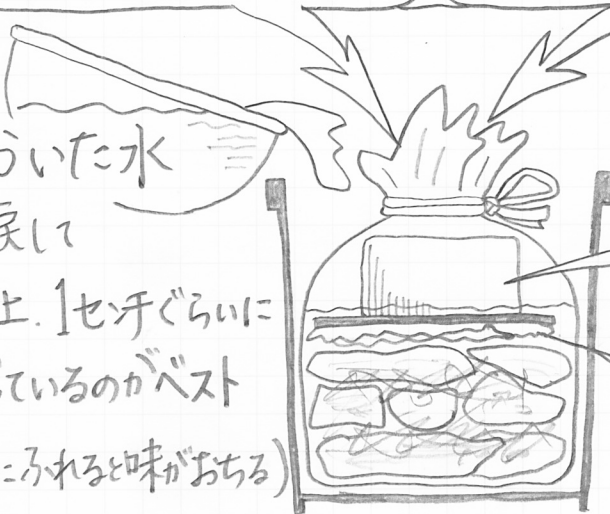 ういた水
戻して
上、1センチぐらいに
ているのがベスト
にふれると味がおちる)